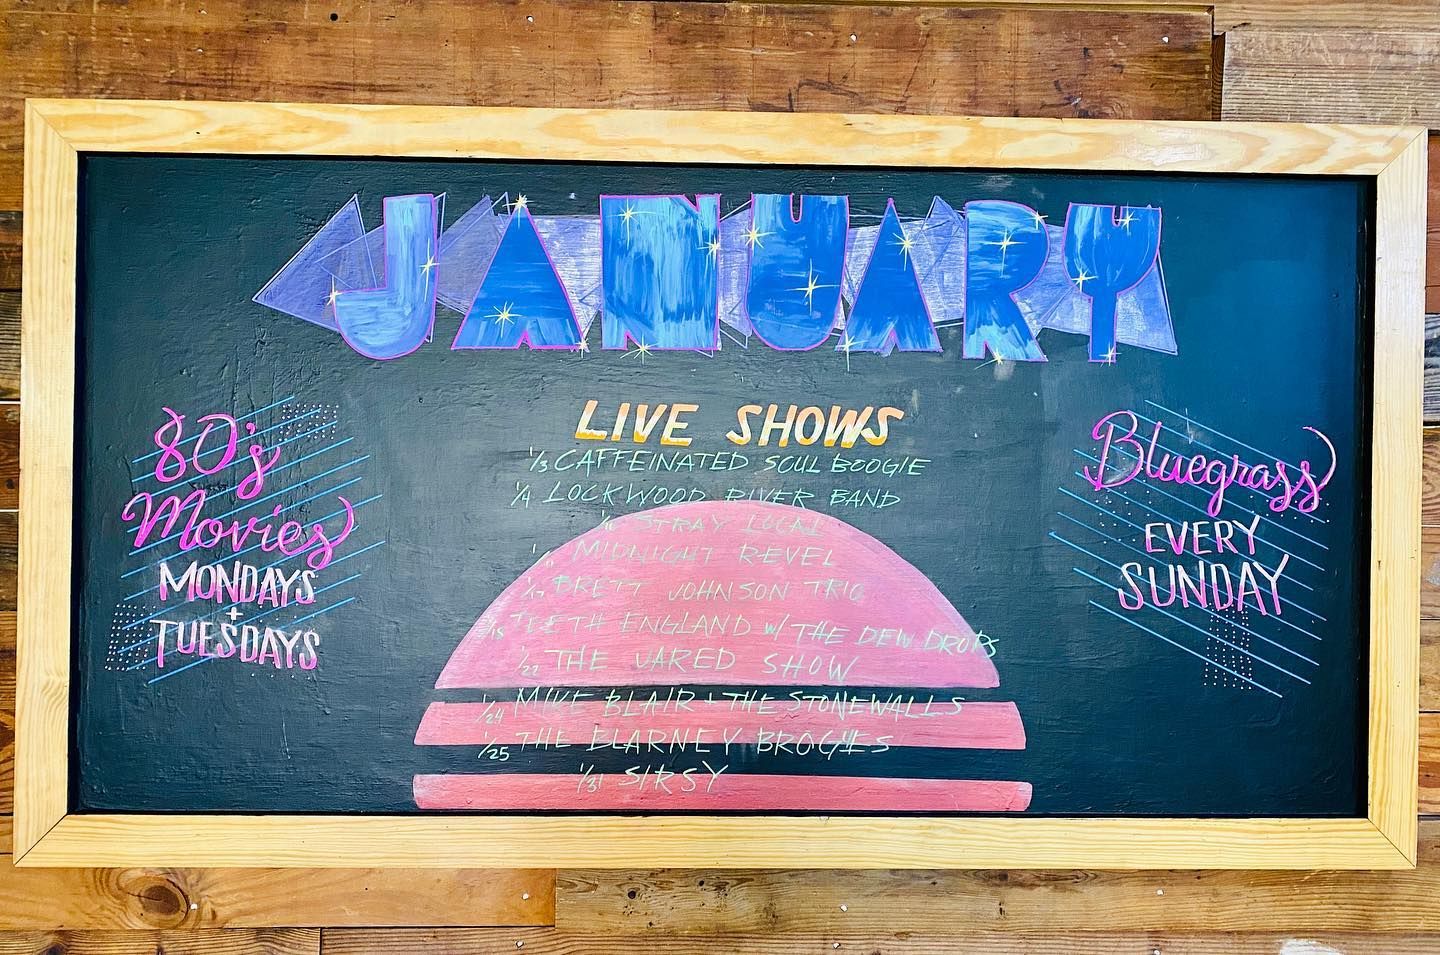 JANUARY
80's
Movies
MONDAYS
+
TUESDAYS
LIVE SHOWS
1/3 CAFFEINATED SOUL BOOGIE
1/4 LOCKWOOD RIVER BAND
STRAY LOCAL
MIDNIGHT REVEL
BRETT JOHNSON TRIO
1/18 ENGLAND W/ THE DEW DROPS
1/22 THE JARED SHOW
1/24 MIKE BLAIR + THE STONEWALLS
1/25 THE BLARNEY BROGUES
1/31 SIRSY
Bluegrass
EVERY
SUNDAY